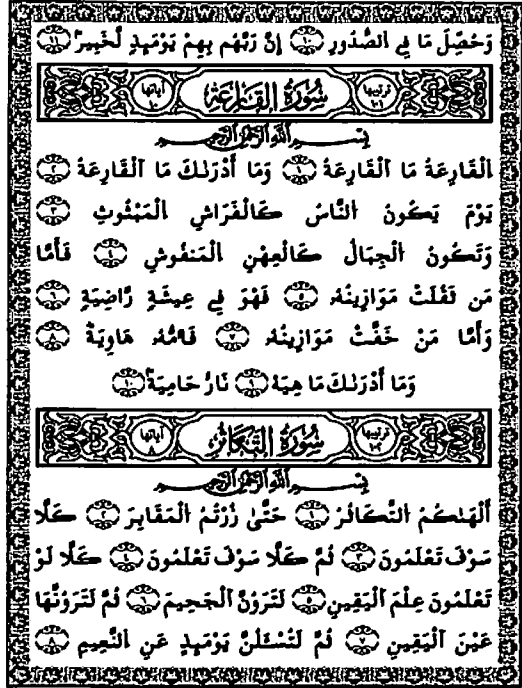 وَحُصِّلَ مَا فِي الصُّدُورِ ١٠ إِنَّ رَبَّهُم بِهِمْ يَوْمَئِذٍ لَّخَبِيرٌ ١١
ترتيبها ١٠١ سُورَةُ القَارِعَةِ آياتها ١٠
بِسْمِ اللَّهِ الرَّحْمَٰنِ الرَّحِيمِ
الْقَارِعَةُ مَا الْقَارِعَةُ ١ وَمَا أَدْرَىٰكَ مَا الْقَارِعَةُ ٢
يَوْمَ يَكُونُ النَّاسُ كَالْفَرَاشِ الْمَبْثُوثِ ٣
وَتَكُونُ الْجِبَالُ كَالْعِهْنِ الْمَنفُوشِ ٤ فَأَمَّا
مَن ثَقُلَتْ مَوَازِينُهُ ٥ فَهُوَ فِي عِيشَةٍ رَّاضِيَةٍ ٦
وَأَمَّا مَنْ خَفَّتْ مَوَازِينُهُ ٧ فَأُمُّهُ هَاوِيَةٌ ٨
وَمَا أَدْرَىٰكَ مَا هِيَهْ ٩ نَارٌ حَامِيَةٌ ١٠
ترتيبها ١٠٢ سُورَةُ التَّكَاثُرِ آياتها ٨
بِسْمِ اللَّهِ الرَّحْمَٰنِ الرَّحِيمِ
أَلْهَىٰكُمُ التَّكَاثُرُ ١ حَتَّىٰ زُرْتُمُ الْمَقَابِرَ ٢ كَلَّا
سَوْفَ تَعْلَمُونَ ٣ ثُمَّ كَلَّا سَوْفَ تَعْلَمُونَ ٤ كَلَّا لَوْ
تَعْلَمُونَ عِلْمَ الْيَقِينِ ٥ لَتَرَوُنَّ الْجَحِيمَ ٦ ثُمَّ لَتَرَوُنَّهَا
عَيْنَ الْيَقِينِ ٧ ثُمَّ لَتُسْئَلُنَّ يَوْمَئِذٍ عَنِ النَّعِيمِ ٨